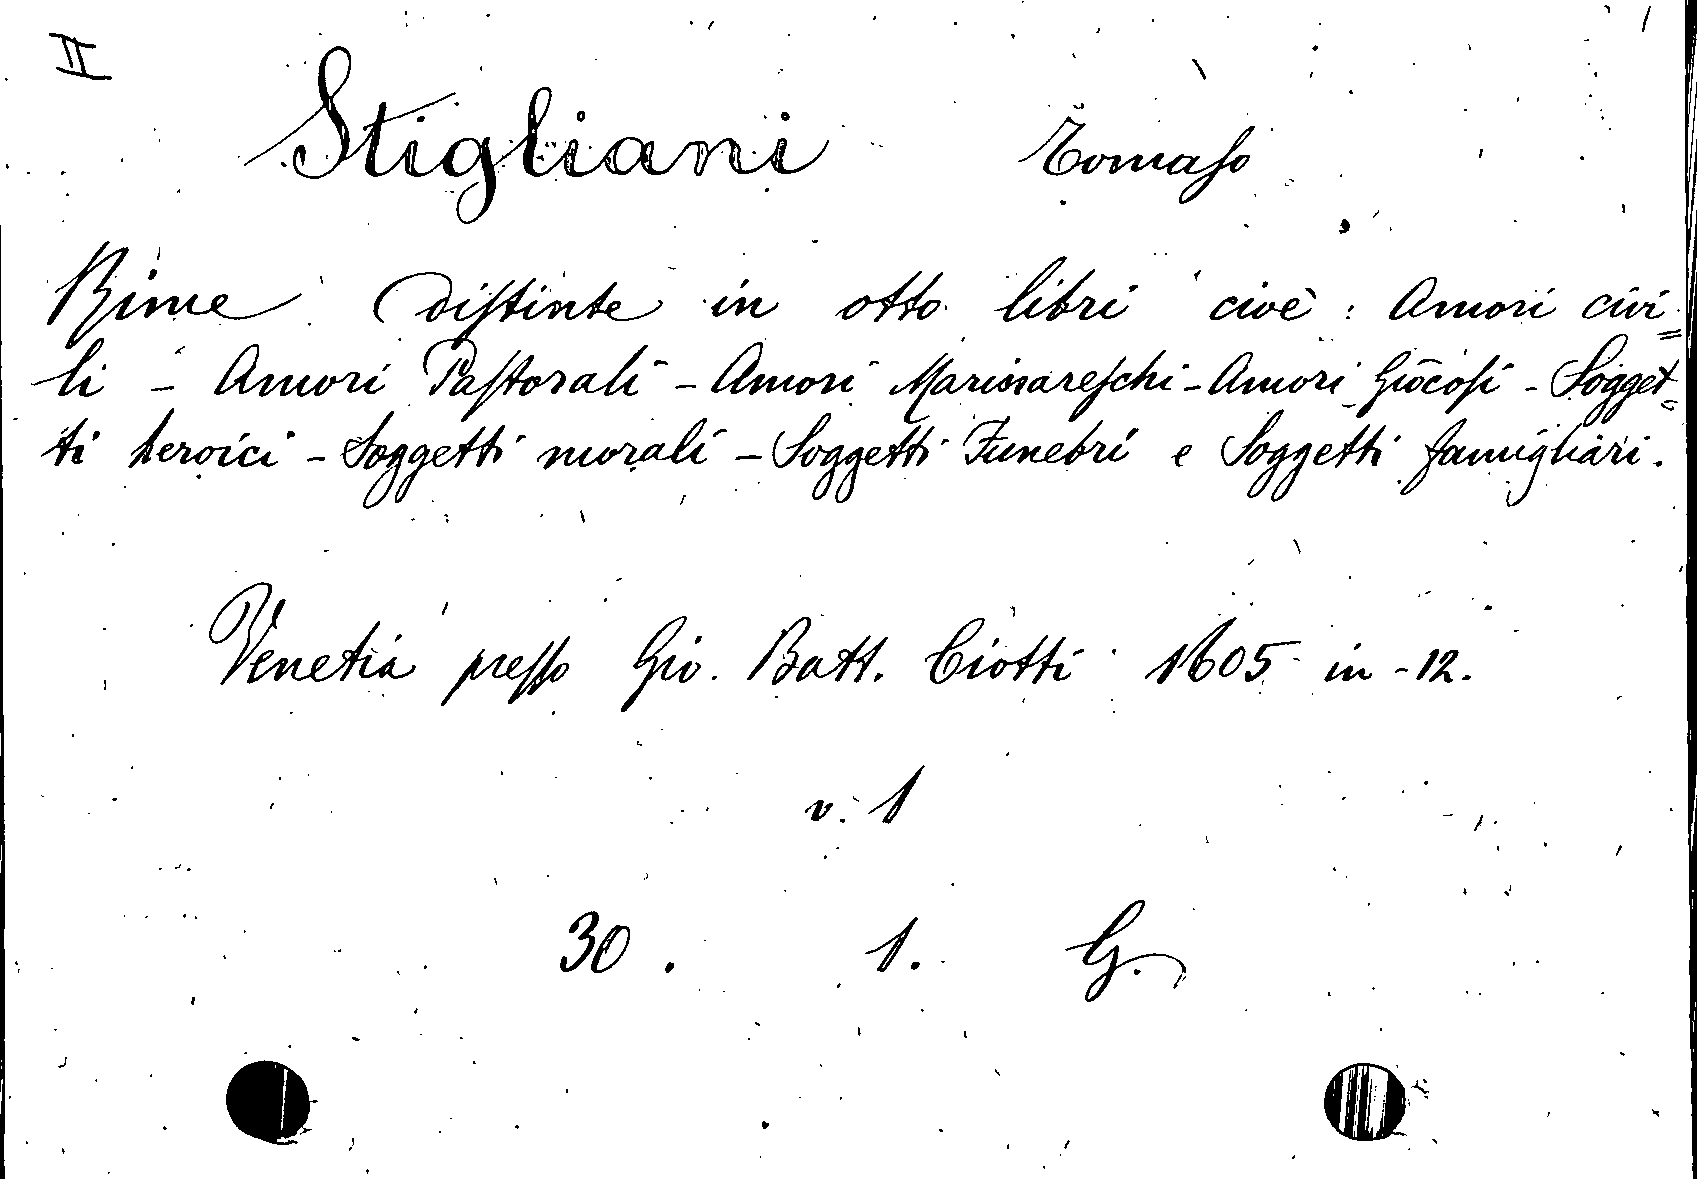 II
Stigliani Tomaso
Rime Distinte in otto libri cioè: Amori civi=
li - Amori Pastorali - Amori Marinareschi - Amori Giocosi - Sogget=
ti heroici - Soggetti morali - Soggetti Funebri e Soggetti famigliari.
Venetia presso Gio. Batt. Ciotti 1605 in-12.
v. 1
30. 1. G.